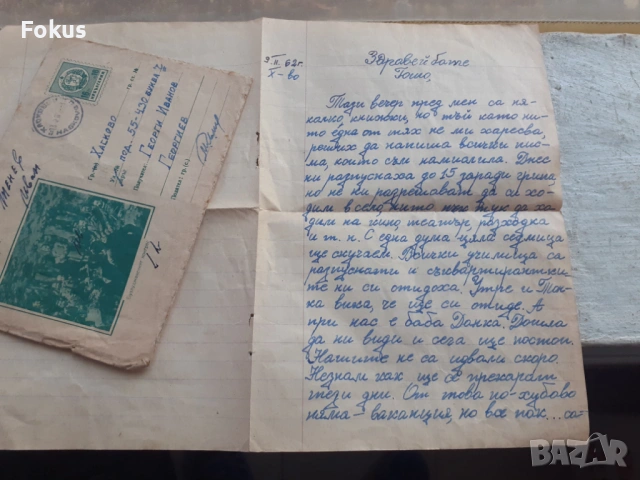 Fokus
гр. Хасково
под. 55-430 буква Г
Георги Иванов
Георгиев
9.II.62г.
Х-во
Здравей бате
Гошо,
Тази вечер пред мен са ня-
калко книжки, но тъй като ни-
то една от тях не ми харесва,
реших да напиша всички пис-
ма, които съм намислила. Днес
ни разпуснаха до 15 заради грипа
но не ни разрешават да си хо-
дим в села нито пък тук да хо-
дим на кино театър, разходка
и т. н. С една дума цяла седмица
ще скучаем. Всички училища са
разпуснати и съквартирантки-
те ни си отидоха. Утре и Тон-
ка вика, че ще си отиде. А
при нас е баба Донка. Дошла
да ни види и сега ще постои.
Нашите не са идвали скоро.
Незнам как ще се прекарат
тези дни. От това по-хубаво
няма - ваканция, но все пак... ск-
BAZAR